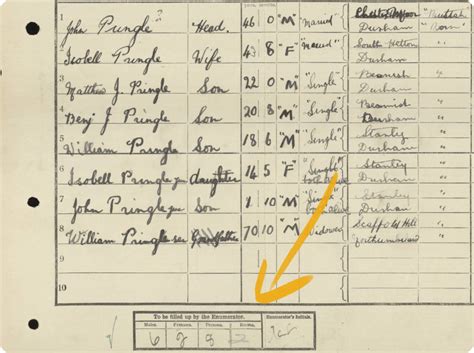 John Pringle Head. 46 0 "M" "Married" Durham
2
Isobell Pringle Wife 43 8 "F" "Married" South Hetton Durham
3
Matthew J. Pringle Son 22 0 "M" "Single" Beamish Durham
4
Benj J Pringle Son 20 8 "M" "Single" Beamish Durham
5
William Pringle Son 18 6 "M" "Single" Stanley Durham
6
Isobell Pringle jun daughter 14 5 "F" "Single" Stanley Durham
7
John Pringle jun Son 1 10 "M" "Single" Stanley Durham
8
William Pringle sen Grandfather 70 10 "M" Widowed Scaffold Hill Northumberland
9
10
To be filled up by the Enumerator.
Males. Females. Persons. Rooms. Enumerator's Initials.
6 2 8 2